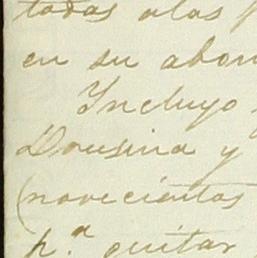 todas otas
en su abon
Incluyo
Dousina y
(novecientos
p.ª quitar